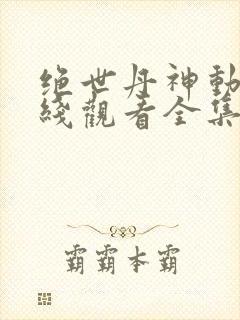 绝世丹神動
綫觀看全集
霸霸本霸